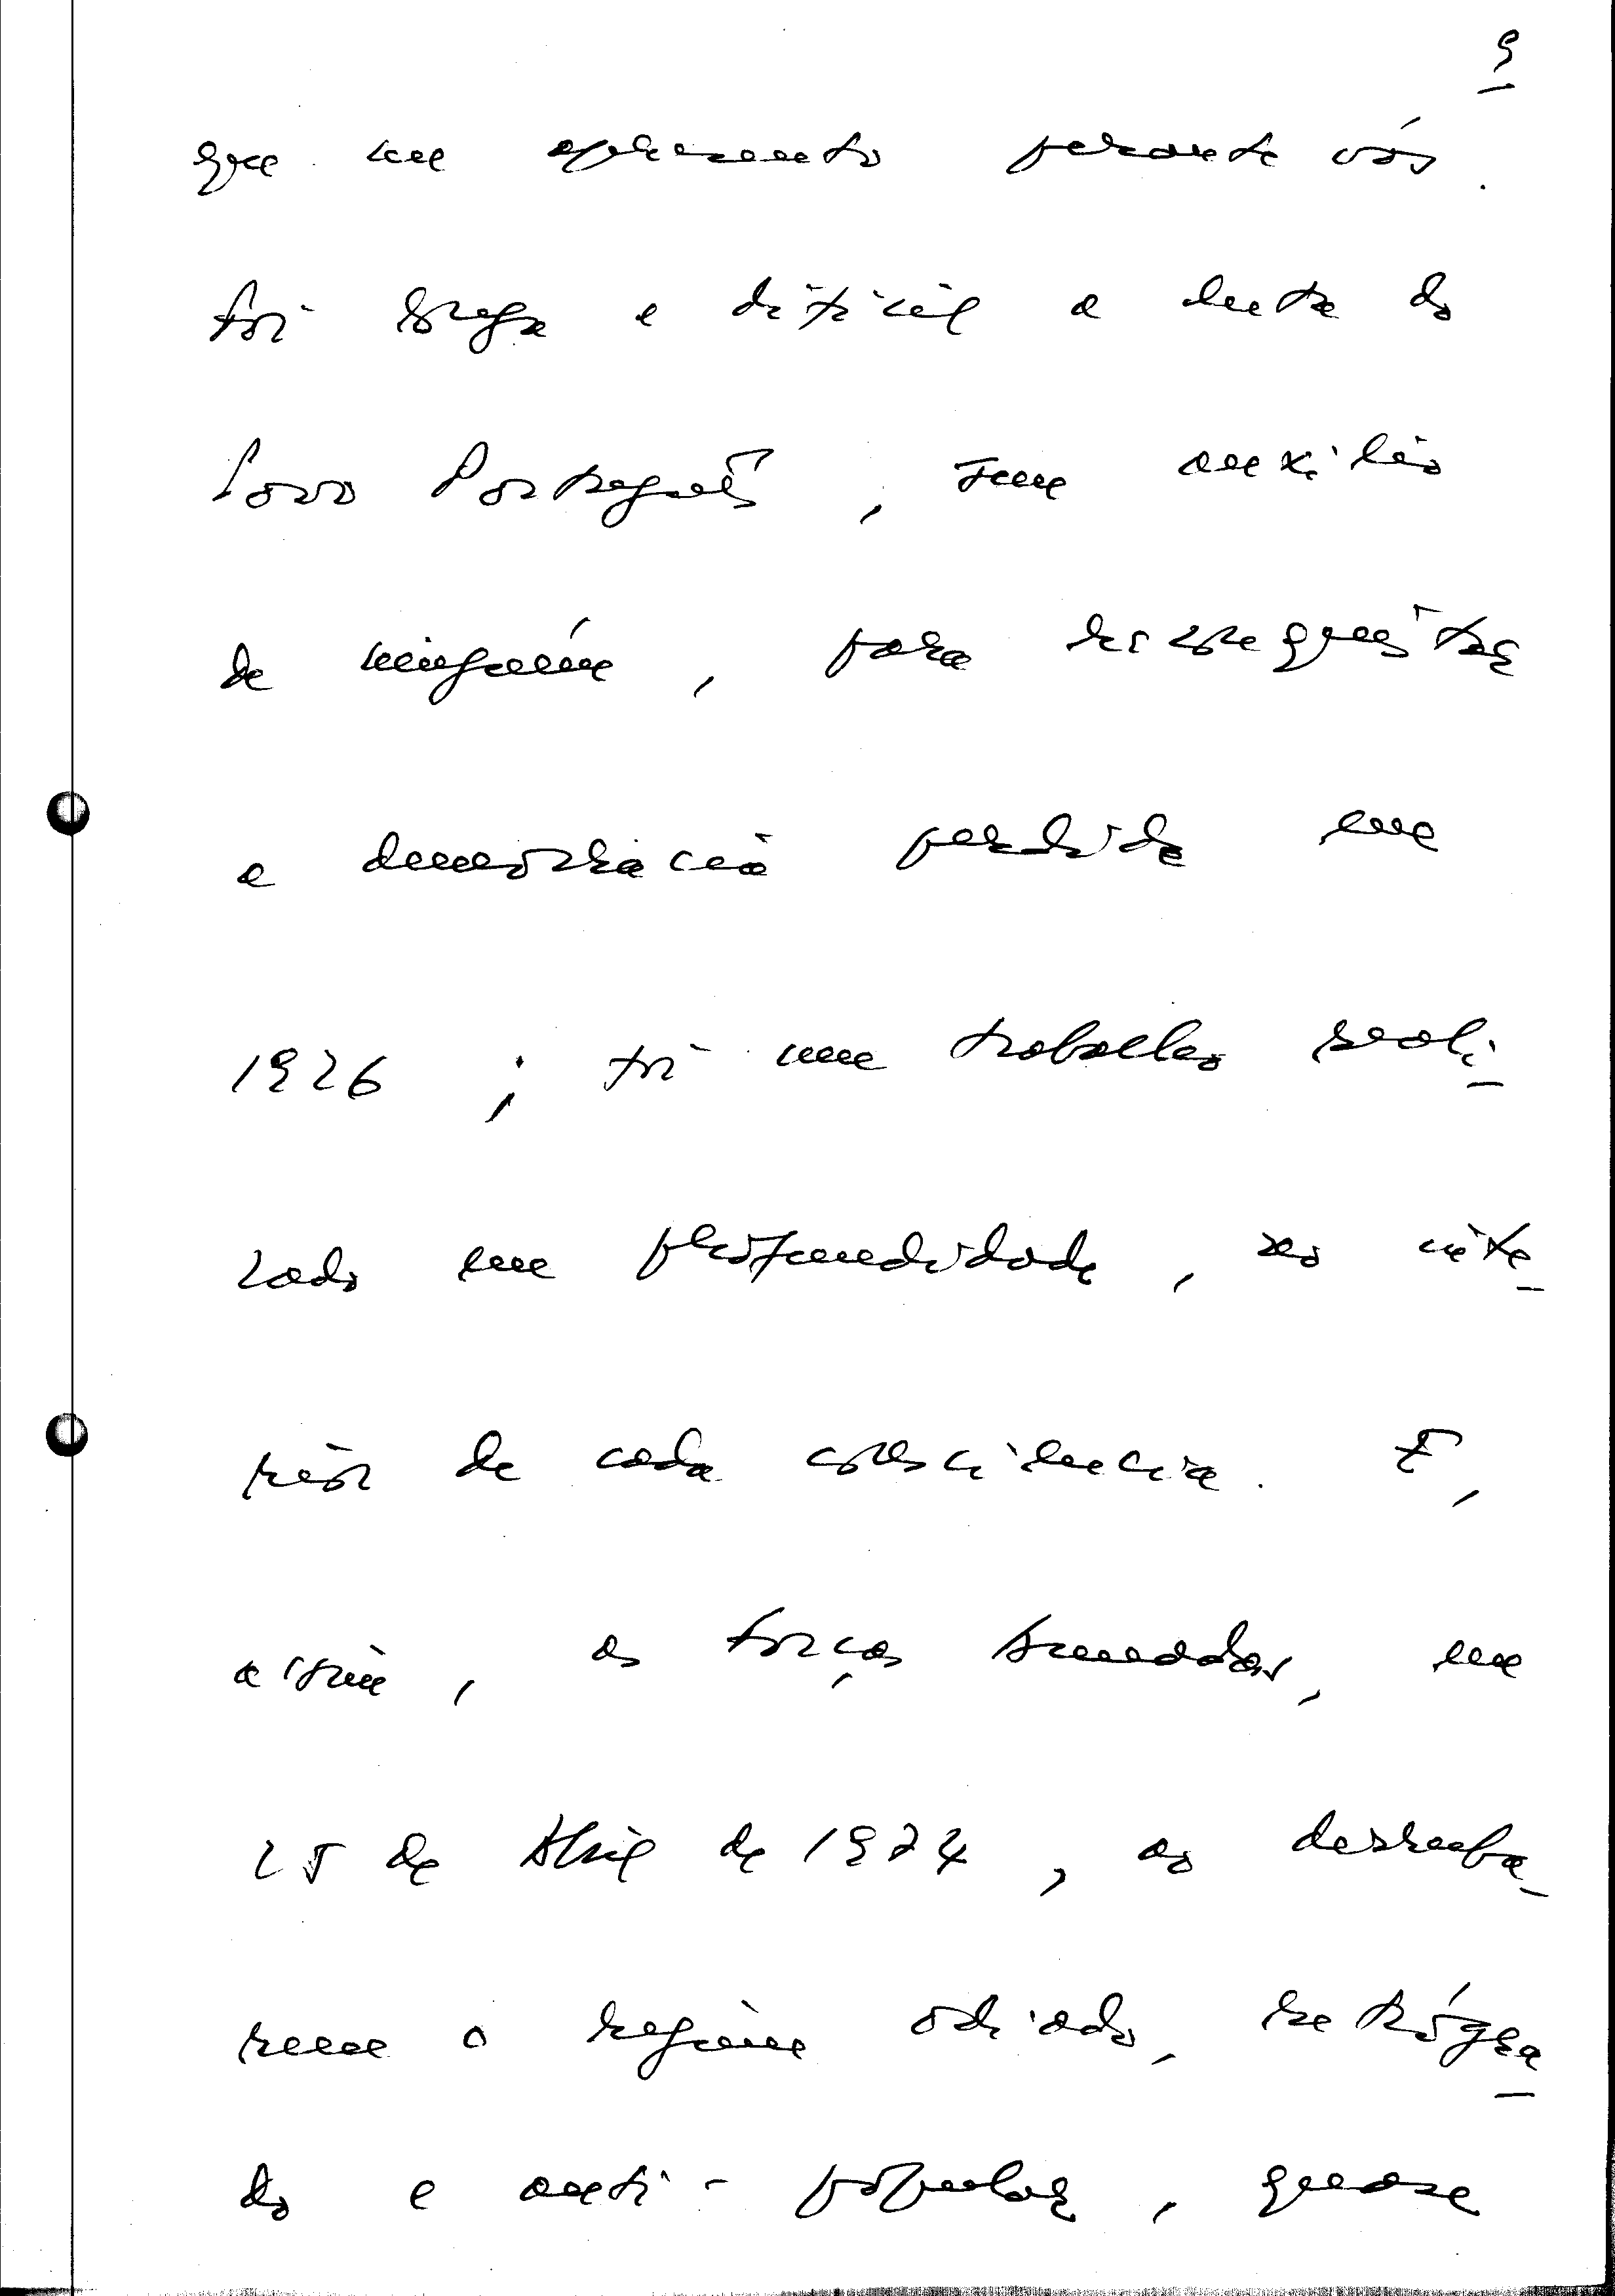 9
que me apresento perante vós.
Foi longa e difícil a luta do
Povo Português, sem auxílio
de ninguém, para reconquistar
a democracia perdida em
1926; foi um trabalho reali-
zado em profundidade, no inte-
rior de cada consciência. E,
assim, as forças armadas, em
25 de Abril de 1974, ao derruba-
rem o regime odiado, retrógra-
do e anti-popular, quase